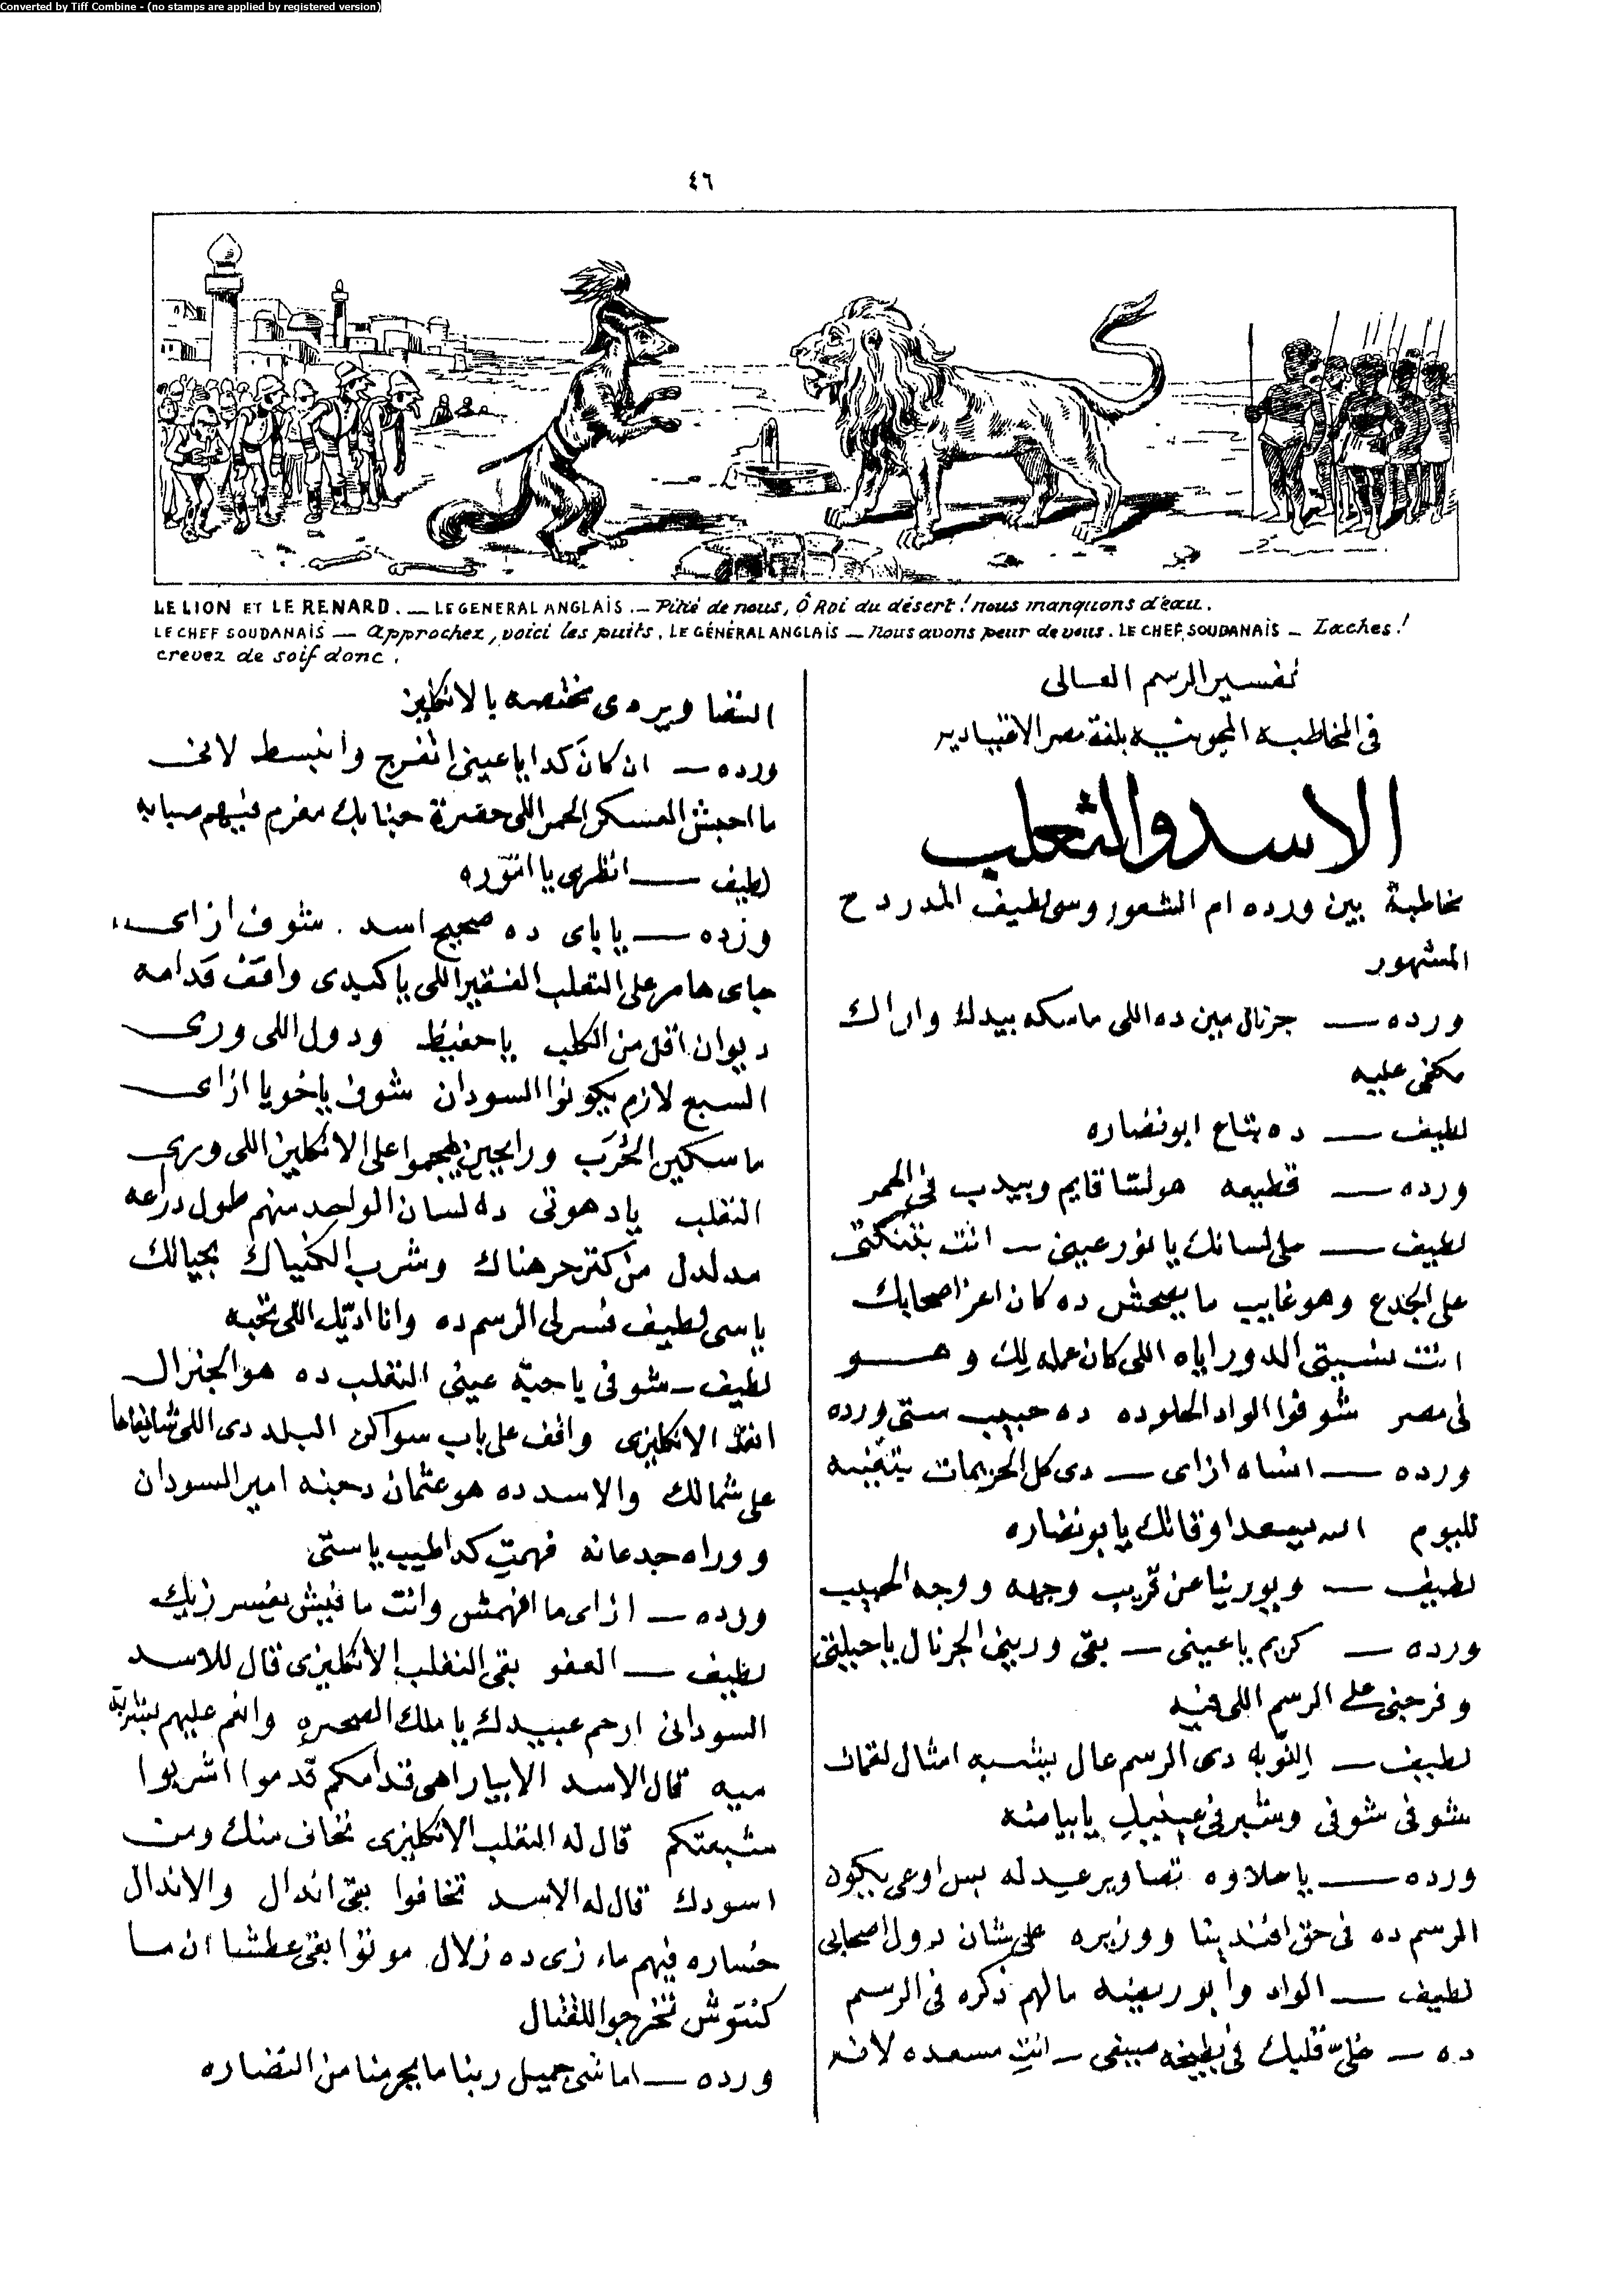 Converted by Tiff Combine - (no stamps are applied by registered version)
٤٦
LE LION ET LE RENARD. — LE GENERAL ANGLAIS. — Pitié de nous, Ô Roi du désert! nous manquons d'eau.
LE CHEF SOUDANAIS — Approchez, voici les puits. LE GÉNÉRAL ANGLAIS — Nous avons peur de vous. LE CHEF SOUDANAIS — Laches!
crevez de soif donc.
تفسير الرسم العالى
فى المخاطبه بلغة مصر
الاسد والثعلب
مخاطبة بين ورده ام الشعور وسى لطيف المدردح
المشهور
ورده — جرنال مين ده اللى ماسكه بيدك واراك
مكفى عليه
لطيف — ده بتاع ابو نضاره
ورده — قطيعه هو لسا قايم وبيدب فى الحمر
لطيف — على لسانك يا نور عينى — انت بتنكتى
على الجدع وهو غايب ما يصحش ده كان اعز اصحابك
انت نسيتى الدور اياه اللى كان عمله لك وهو
فى مصر شوفوا الواد الحلو ده ده حبيب ستى ورده
ورده — انساه ازاى — دى كل الحريمات بتغنيه
لليوم الله يسعد اوقاتك يا بو نضاره
لطيف — ويورينا عن قريب وجهه ووجه الحبيب
ورده — كريم يا عينى — بقى ورينى الجرنال يا حيلتى
وفرجنى على الرسم اللى فيه
لطيف — النوبه دى الرسم عال بيشبه امثال لقمان
شوفى شوفى يا بيامنه
ورده — يا حلاوه تصاوير عيد له بس اوعى يكون
الرسم ده فى حق افندينا ووزيره على شان دول اصحابى
لطيف — الواد وابو ريضه مالهم ذكره فى الرسم
ده — خلى قلبك فى بطيخه صيفى — انت مسعده لانه
التصاوير دى مختصه بالانكليز
ورده — ان كان كدا يا عينى اتفرج وانبسط لانى
ما احبش العسكر الحمر اللى حضرة جنابك مغرم فيهم صبابه
لطيف — انظرى يا اموره
ورده — يا باى ده صحيح اسد . شوف ازاى
جاى هامر على التعلب الفقير اللى يا كبدى واقف قدامه
ديوان اقل من الكلب يا حفيظ ودول اللى ورى
السبع لازم يكونوا السودان شوف يا خويا ازاى
ماسكين الحُرَب ورايحين يهجموا على الانكليز اللى ورى
التعلب يا دهوتى ده لسان الواحد منهم طول دراعه
مدلدل من كتر حر هناك وشرب الكنياك بحيالك
يا سى لطيف فسر لى الرسم ده وانا اديلك اللى تحبه
لطيف — شوفى يا حبة عينى التعلب ده هو الجنرال
الانكليزى واقف على باب سواكن البلد دى اللى
على شمالك والاسد ده هو عثمان دجنه امير السودان
ووراه جدعانه فهمتِ كدا طيب يا ستى
ورده — ازاى ما افهمش وانت ما فيش مفسر زيك
لطيف — العفو بقى التعلب الانكليزى قال للاسد
السودانى ارحم عبيدك يا ملك الصحره وانعم عليهم بشربة
ميه قال الاسد الابيار اهى قدامكم قدموا اشربوا
شبعتكم قال له التعلب الانكليزى نخاف منك ومن
اسودك قال له الاسد تخافوا بقى اندال والاندال
خساره فيهم ماء زى ده زلال موتوا بقى عطشا ان ما
كنتوش تخرجوا للقتال
ورده — اما شى جميل ربنا ما يحرمنا من النضاره